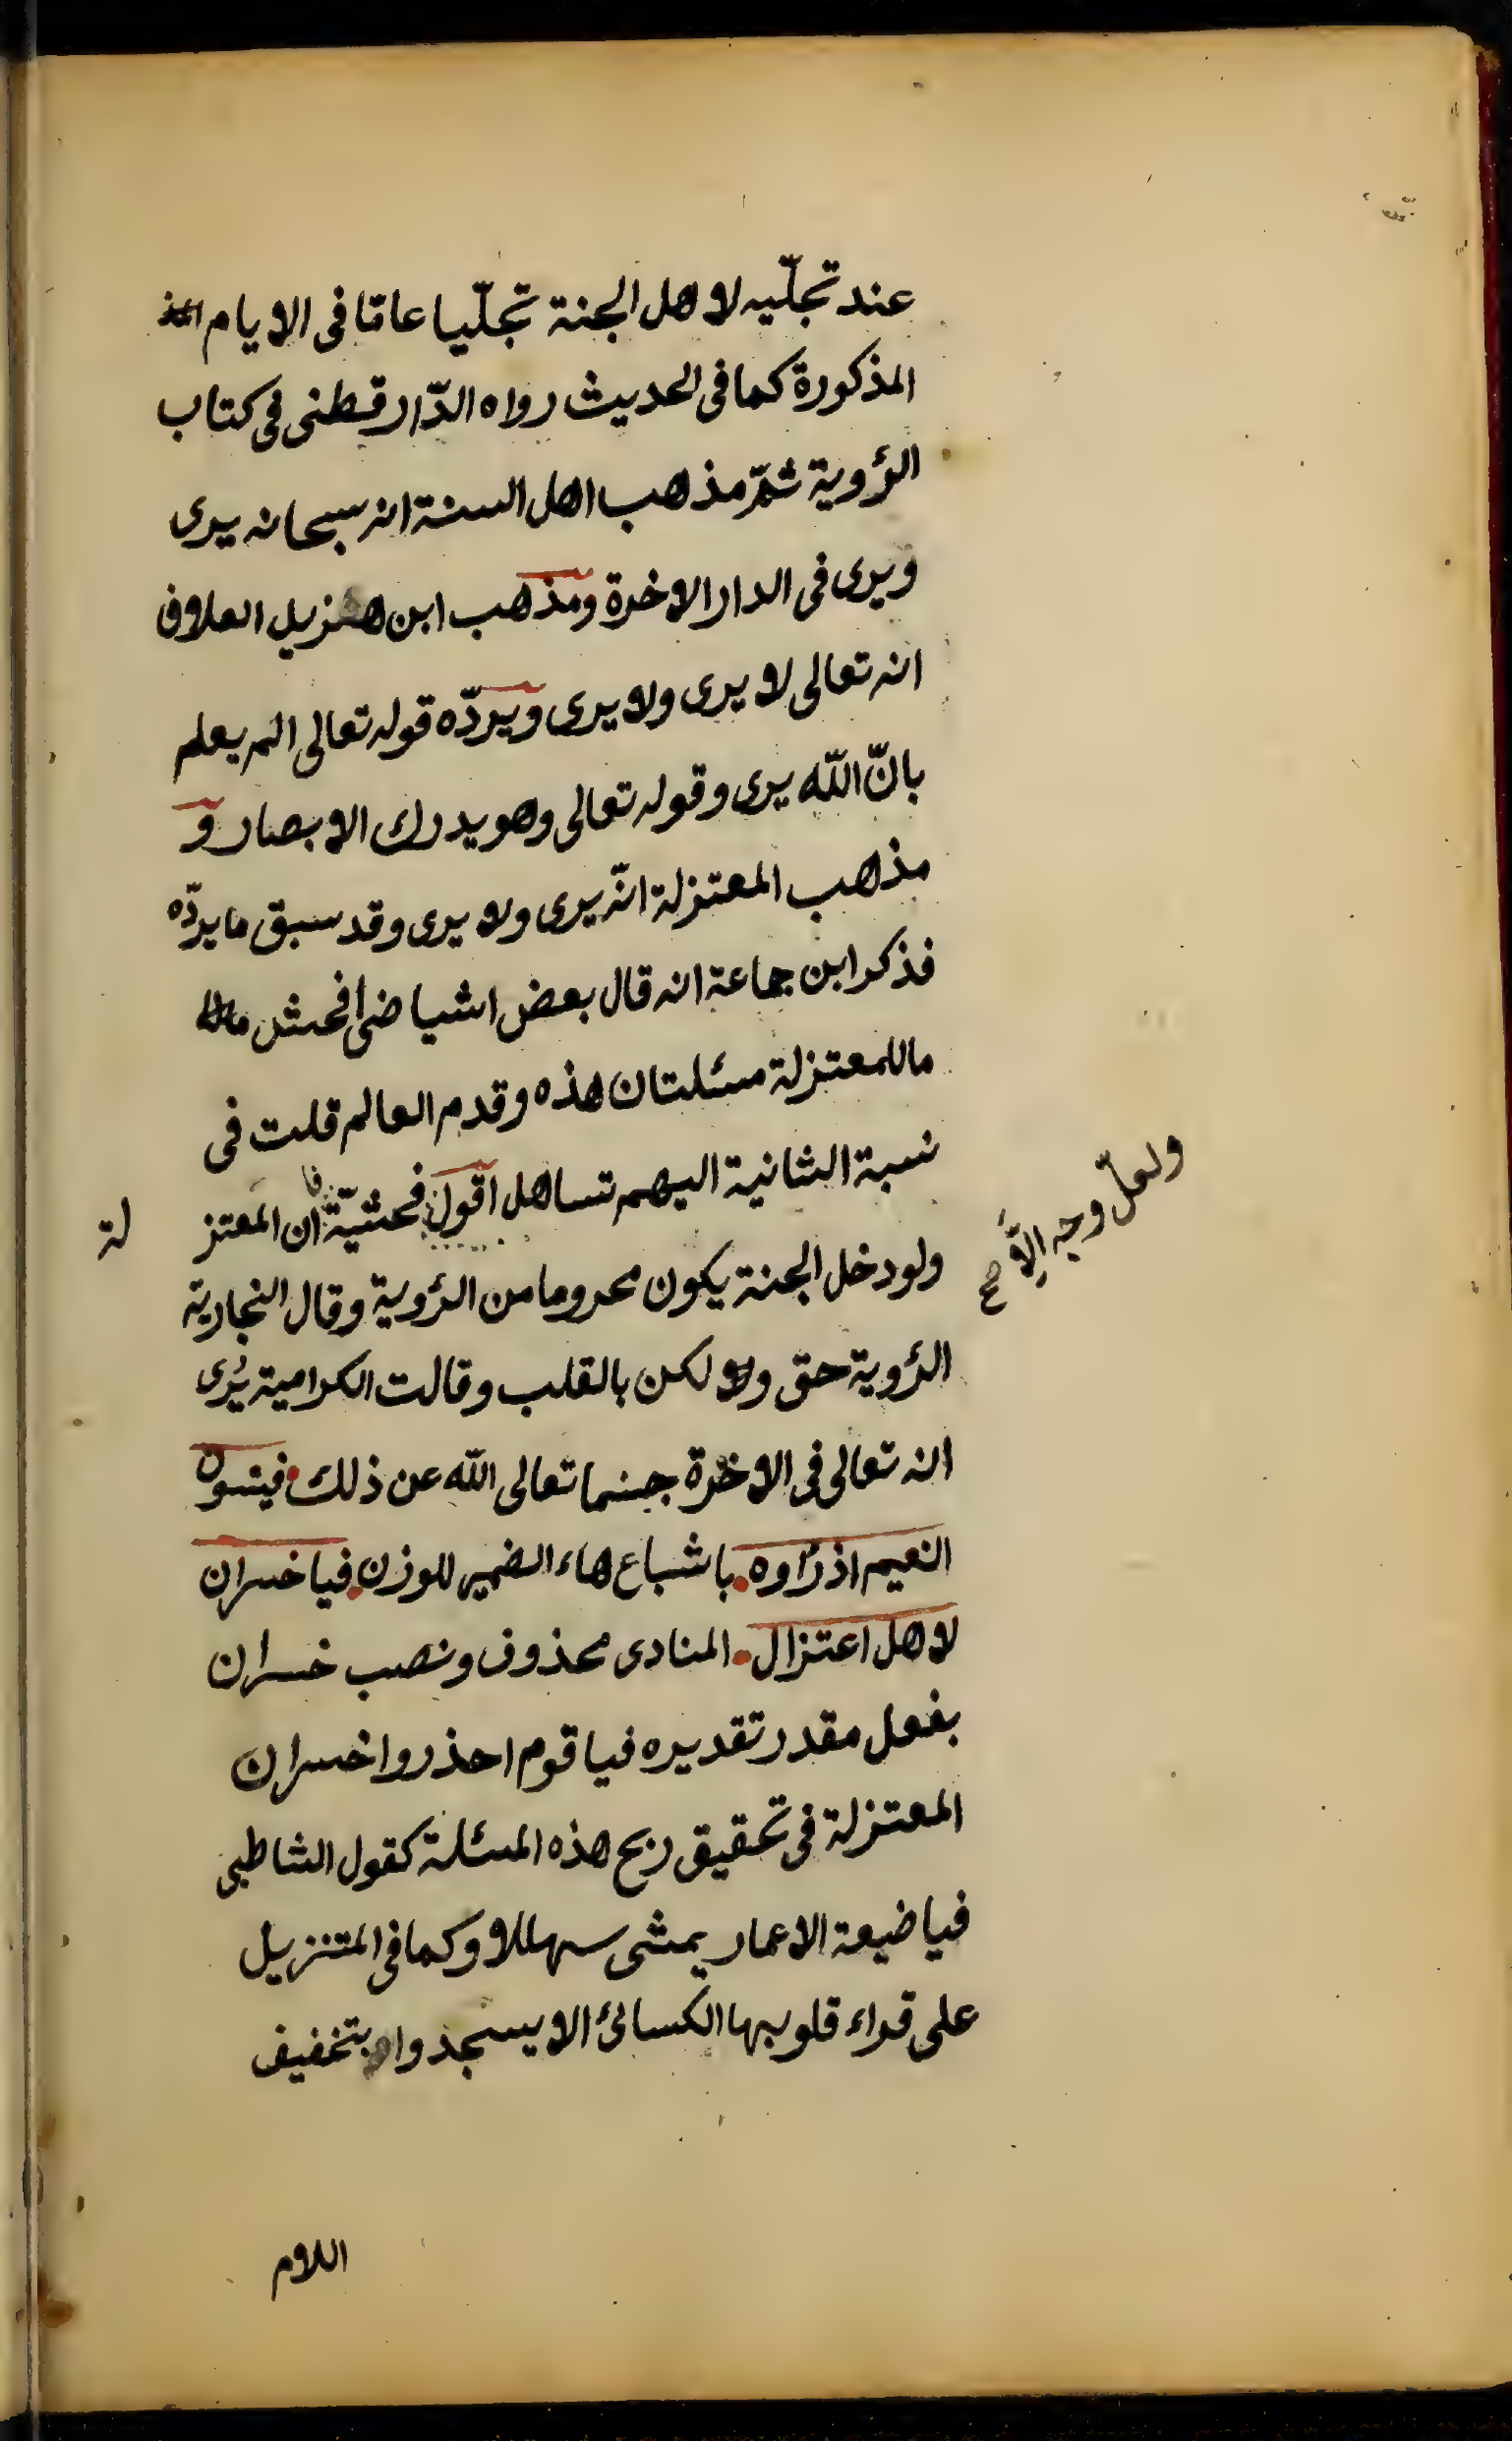 عند تجلّيه لاهل الجنة تجلّيا عاما فى الايام
المذكورة كما فى الحديث رواه الدّارقطنى فى كتاب
الرؤية ثمّ مذهب اهل السنة انه سبحانه يرى
ويرى فى الدار الاخرة ومذهب ابن هزيل العلاف
انه تعالى لا يرى ولا يرى ويردّه قوله تعالى الم يعلم
بانّ اللّه يرى وقوله تعالى وهو يدرك الابصار و
مذهب المعتزلة انّه يرى ولا يرى وقد سبق ما يردّه
فذكر ابن جماعة انه قال بعض اشياخى افحش
ما للمعتزلة مسئلتان هذه وقدم العالم قلت فى
نسبة الثانية اليهم تساهل اقول ان المعتز لة
ولعلّ وجه صح
ولو دخل الجنة يكون محروما من الرؤية وقال النجارية
الرؤية حق ولكن بالقلب وقالت الكرامية يُرى
انه تعالى فى الاخرة جسما تعالى اللّه عن ذلك فينسون
النعيم اذا رأوه باشباع هاء الضمير للوزن فيا خسران
لاهل اعتزال المنادى محذوف ونصب خسران
بفعل مقدر تقديره فيا قوم احذروا خسران
المعتزلة فى تحقيق ربح هذه المسئلة كقول الشاطبى
فيا ضيعة الاعمار يمشى سهللا وكما فى التنزيل
على قراء قلوبها الكسائى الا يسجدوا بتخفيف
اللام